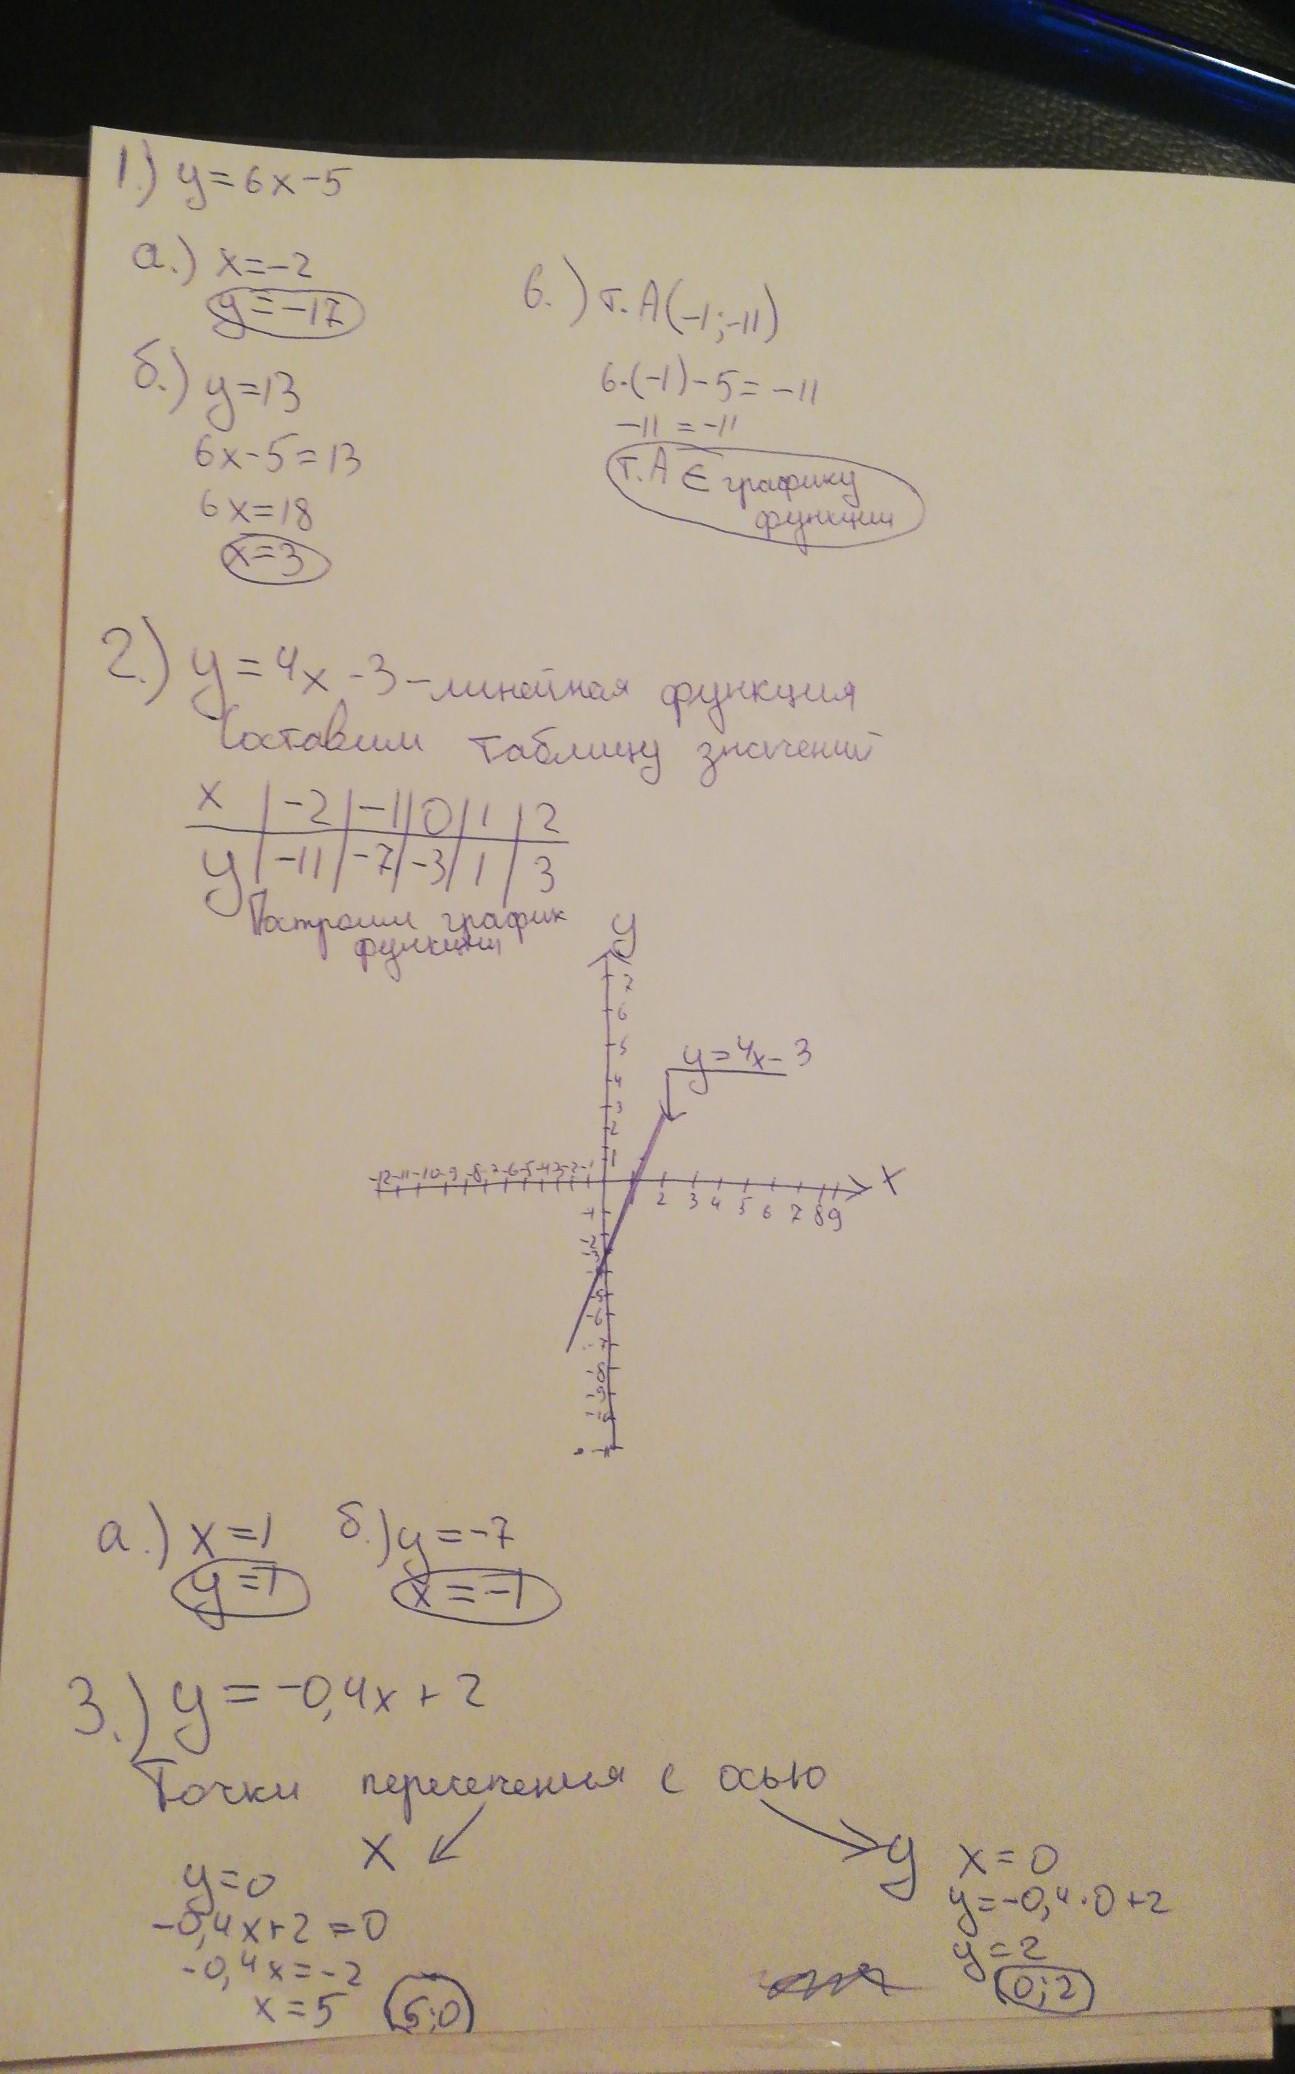 1.) y=6x-5
а.) x=-2
y=-17
б.) y=13
6x-5=13
6x=18
x=3
в.) т.А(-1;-11)
6·(-1)-5=-11
-11=-11
т.А ∈ графику
функции
2.) y=4x-3-линейная функция
Составим таблицу значений
x | -2 | -1 | 0 | 1 | 2
y | -11 | -7 | -3 | 1 | 3
Построим график
функции
y
7
6
5
4
3
2
1
y=4x-3
-12 -11 -10 -9 -8 -7 -6 -5 -4 -3 -2 -1
2 3 4 5 6 7 8 9
x
-1
-2
-3
-5
-6
-7
-8
-9
а.) x=1
y=1
б.) y=-7
x=-1
3.) y=-0,4x+2
Точки пересечения с осью
x
y=0
-0,4x+2=0
-0,4x=-2
x=5 (5;0)
y x=0
y=-0,4·0+2
y=2
(0;2)